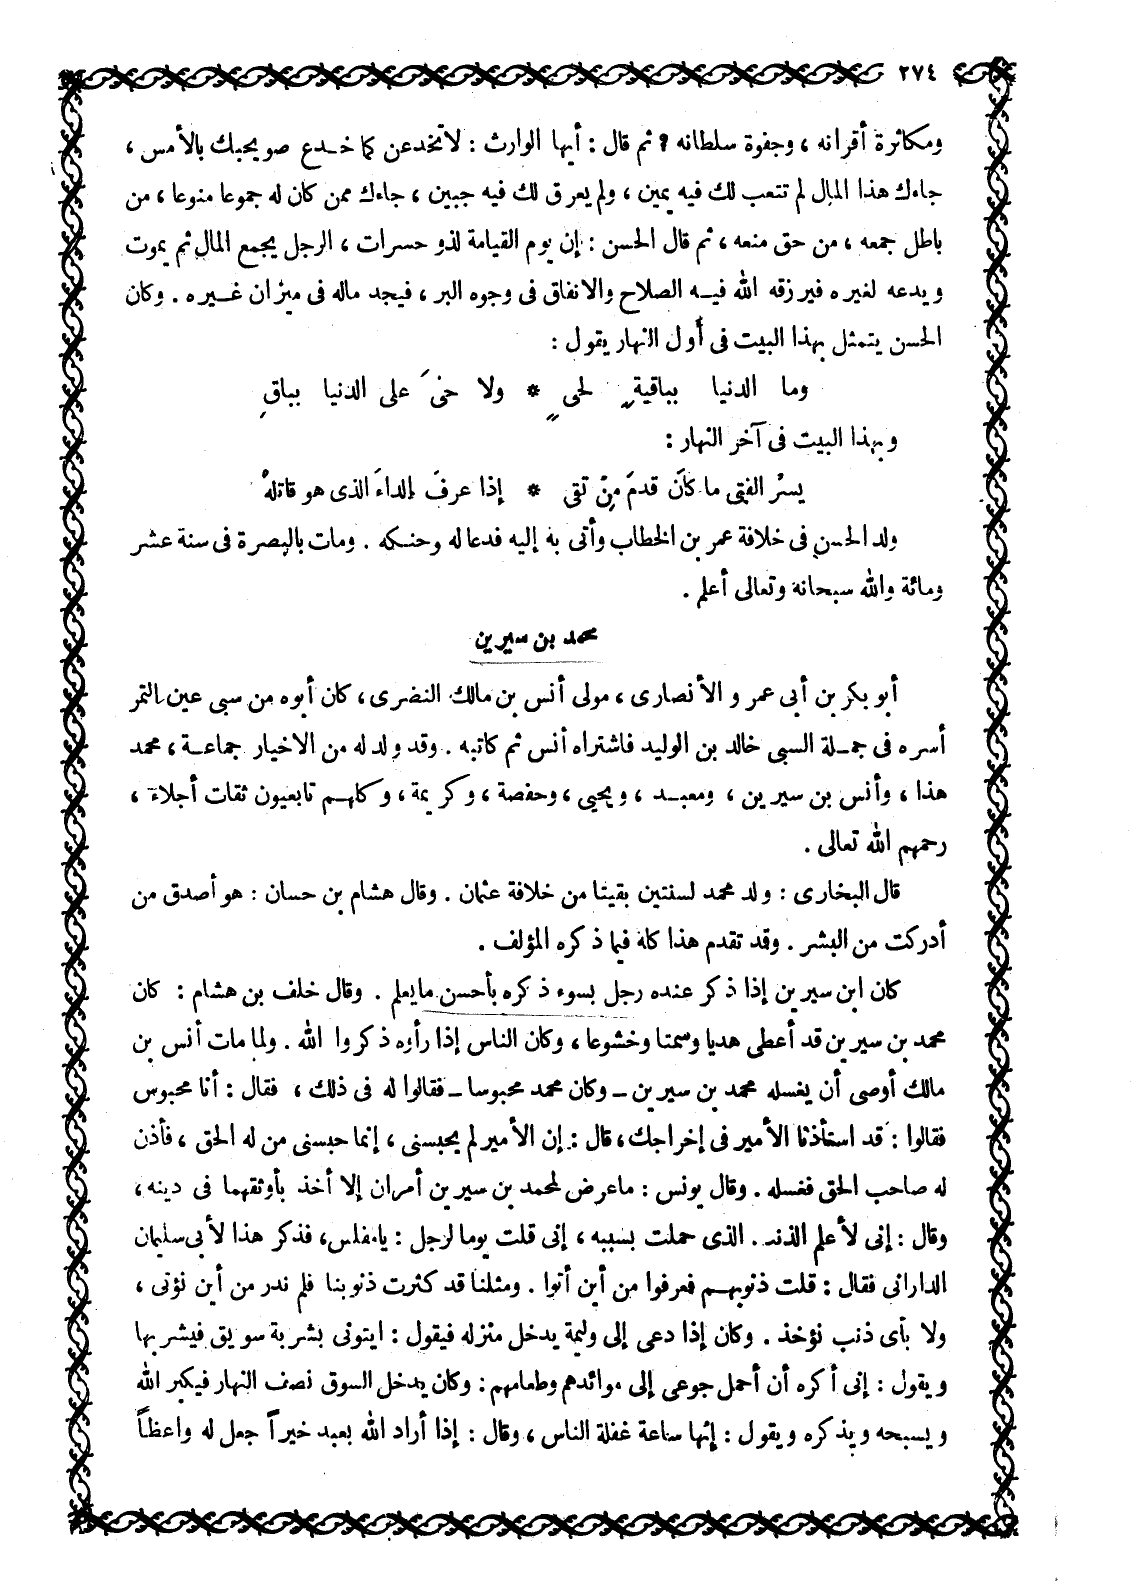 ٢٧٤
ومكاثرة أقرانه ، وجفوة سلطانه ؟ ثم قال : أيها الوارث : لا تخدعن كما خدع صويحبك بالأمس ،
جاءك هذا المال لم تتعب لك فيه يمين ، ولم يعرق لك فيه جبين ، جاءك ممن كان له جموعا منوعا ، من
باطل جمعه ، من حق منعه ، ثم قال الحسن : إن يوم القيامة لذو حسرات ، الرجل يجمع المال ثم يموت
ويدعه لغيره فيرزقه الله فيه الصلاح والانفاق فى وجوه البر ، فيجد ماله فى ميزان غيره . وكان
الحسن يتمثل بهذا البيت فى أول النهار يقول :
وما الدنيا بباقيةٍ لحىٍ * ولا حىَ على الدنيا بباقِ
وبهذا البيت فى آخر النهار :
يسرُ الفتى ما كانَ قدمَ مِنْ تقى * إذا عرفَ الداءَ الذى هو قاتلهُ
ولد الحسن فى خلافة عمر بن الخطاب وأتى به إليه فدعا له وحنكه . ومات بالبصرة فى سنة عشر
ومائة والله سبحانه وتعالى أعلم .
محمد بن سيرين
أبو بكر بن أبى عمرو الأنصارى ، مولى أنس بن مالك النضرى ، كان أبوه من سبى عين التمر
أسره فى جملة السبى خالد بن الوليد فاشتراه أنس ثم كاتبه . وقد ولد له من الاخيار جماعة ، محمد
هذا ، وأنس بن سيرين ، ومعبد ، ويحيى ، وحفصة ، وكريمة ، وكلهم تابعيون ثقات أجلاء ،
رحمهم الله تعالى .
قال البخارى : ولد محمد لسنتين بقيتا من خلافة عثمان . وقال هشام بن حسان : هو أصدق من
أدركت من البشر . وقد تقدم هذا كله فيما ذكره المؤلف .
كان ابن سيرين إذا ذكر عنده رجل بسوء ذكره بأحسن ما يعلم . وقال خلف بن هشام : كان
محمد بن سيرين قد أعطى هديا وسمتا وخشوعا ، وكان الناس إذا رأوه ذكروا الله . ولما مات أنس بن
مالك أوصى أن يغسله محمد بن سيرين ـ وكان محمد محبوسا ـ فقالوا له فى ذلك ، فقال : أنا محبوس
فقالوا : قد استأذنا الأمير فى إخراجك ، قال : إن الأمير لم يحبسنى ، إنما حبسنى من له الحق ، فأذن
له صاحب الحق فغسله . وقال يونس : ما عرض لمحمد بن سيرين أمران إلا أخذ بأوثقهما فى دينه ،
وقال : إنى لأعلم الذنب الذى حملت بسببه ، إنى قلت يوما لرجل : يا مفلس ، فذكر هذا لأبى سليمان
الدارانى فقال : قلت ذنوبهم فعرفوا من أين أتوا . ومثلنا قد كثرت ذنوبنا فلم ندر من أين نؤتى ،
ولا بأى ذنب نؤخذ . وكان إذا دعى إلى وليمة يدخل منزله فيقول : ايتونى بشربة سويق فيشربها
ويقول : إنى أكره أن أحمل جوعى إلى موائدهم وطعامهم : وكان يدخل السوق نصف النهار فيكبر الله
ويسبحه ويذكره ويقول : إنها ساعة غفلة الناس ، وقال : إذا أراد الله بعبد خيراً جعل له واعظاً